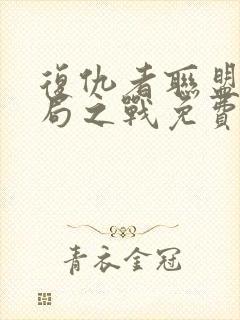 復仇者聯盟
局之戰免費
青衣金冠